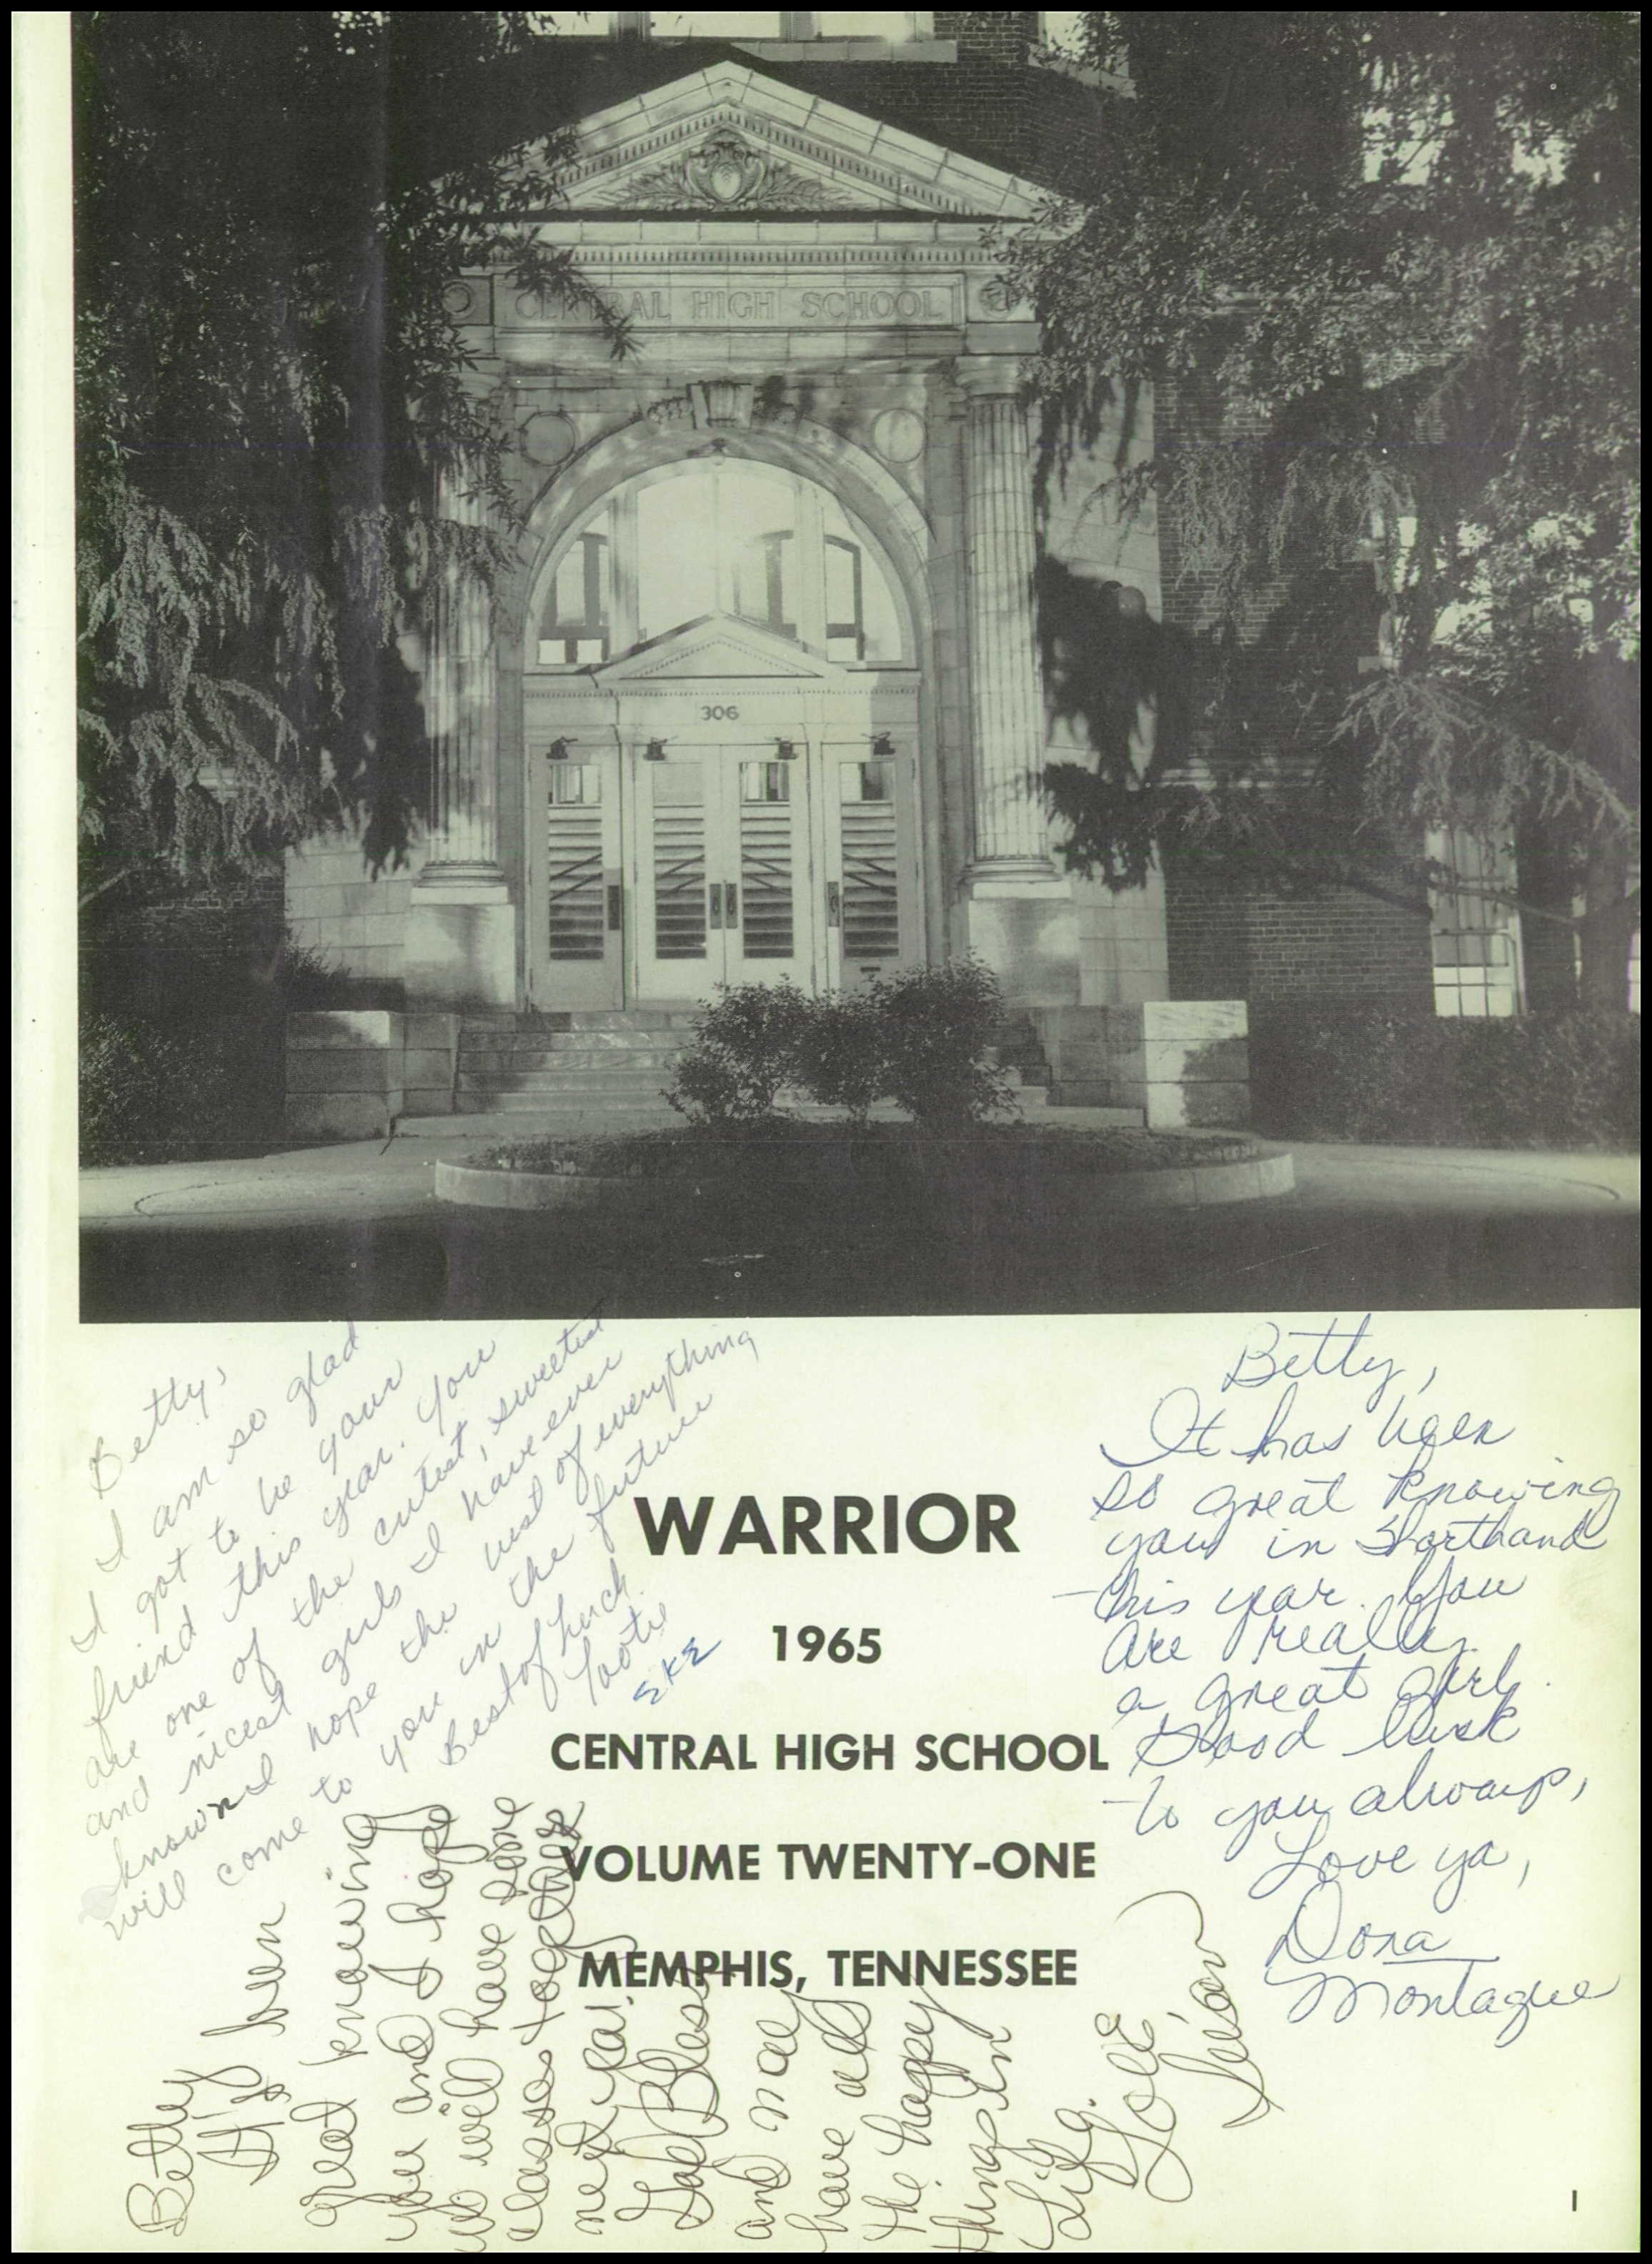 CENTRAL HIGH SCHOOL
306
Betty,
I am so glad
I got to be your
friend this year. You
are one of the cutest, sweetest
and nicest girls I have ever
known I hope the best of everything
will come to you in the future
Best of luck
ΣΚΣ
Betty,
It has been
so great knowing
you in Shorthand
this year. You
are really
a great girl.
Good luck
to you always,
Love ya,
Dona
Montague
WARRIOR
1965
CENTRAL HIGH SCHOOL
VOLUME TWENTY-ONE
MEMPHIS, TENNESSEE
Betty
It's been
great knowing
you and I hope
we will have some
classes together
next year.
God Bless
and may
have all
the happy
things in
Life.
Love
Susan
1